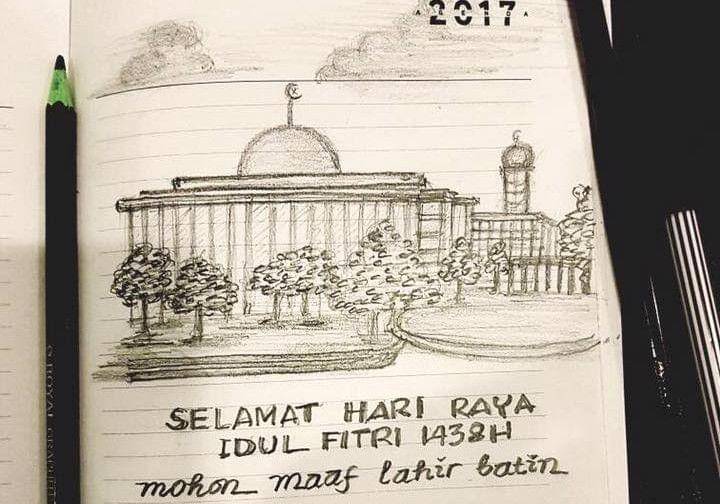 2017
AGENDA
SELAMAT HARI RAYA
IDUL FITRI 1438H
mohon maaf lahir batin